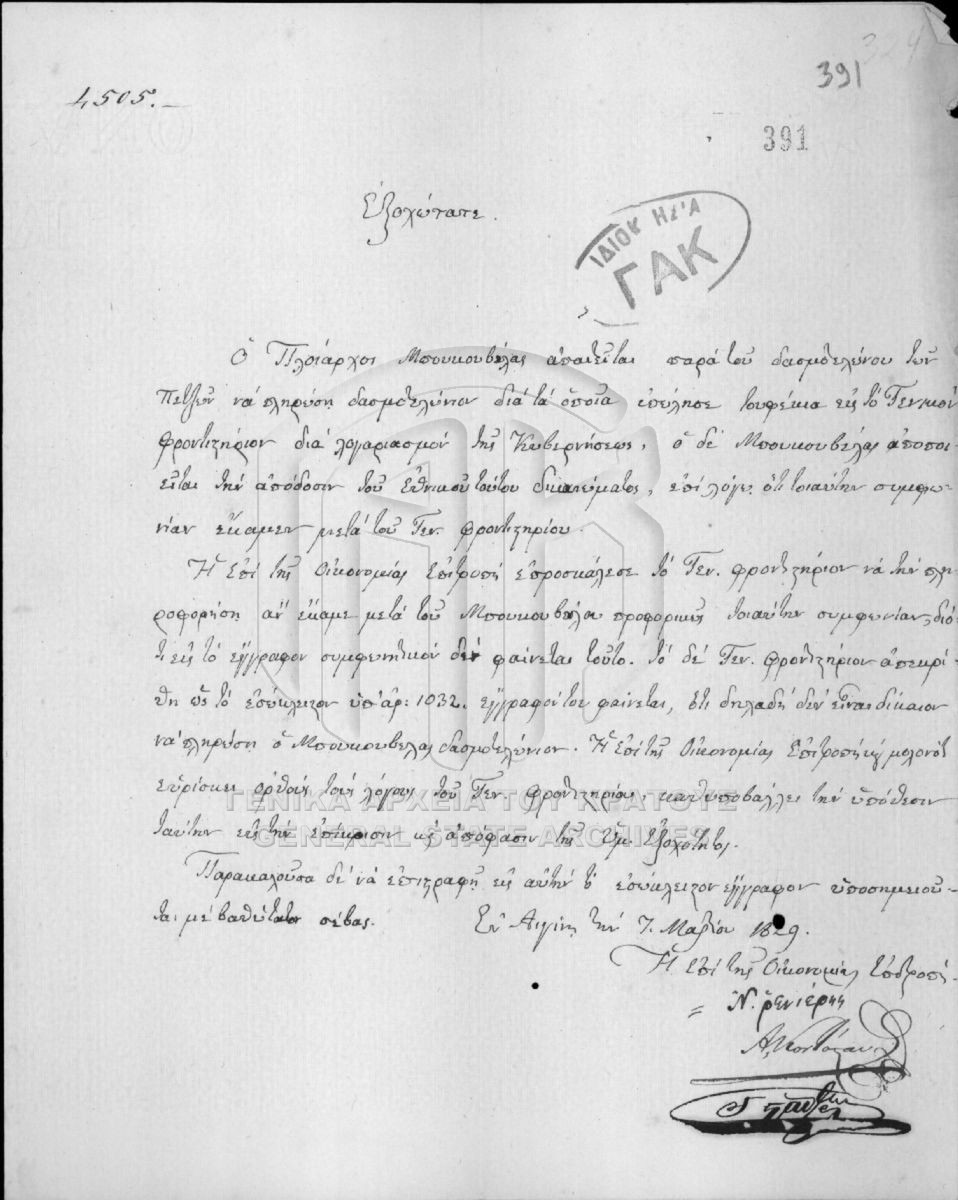 324
391
4505.
391
Ἐξοχώτατε.
ΙΔΙΟΚ ΗΣΊΑ
ΓΑΚ
Ὁ Πλοίαρχος Μπουκουβάλας ἀπαιτεῖται παρὰ τοῦ δασμοτελώνου τῶν
Πετζῶν νὰ πληρώσῃ δασμοτελώνιον διὰ τὰ ὁποῖα ἐπώλησε τουφέκια εἰς τὸ Γενικὸν
φροντιστήριον διὰ λογαριασμὸν τῆς Κυβερνήσεως, ὁ δὲ Μπουκουβάλας ἀποποι-
εῖται τὴν ἀπόδοσιν τοῦ ἐθνικοῦ τούτου δικαιώματος, ἐπὶ λόγῳ ὅτι τοιαύτην συμφω-
νίαν ἔκαμεν μετὰ τοῦ Γεν. φροντιστηρίου.
Ἡ ἐπὶ τῆς Οἰκονομίας Ἐπιτροπὴ ἐπροσκάλεσε τὸ Γεν. φροντιστήριον νὰ τὴν πλη-
ροφορήσῃ ἂν ἔκαμε μετὰ τοῦ Μπουκουβάλα προφορικῶς τοιαύτην συμφωνίαν, διό-
τι εἰς τὸ ἔγγραφον συμφωνητικὸν δὲν φαίνεται τοῦτο. τὸ δὲ Γεν. φροντιστήριον ἀπεκρί-
θη ὡς τὸ ἐσώκλειστον ὑπ' ἀρ: 1032. ἔγγραφόν του φαίνεται, ὅτι δηλαδὴ δὲν εἶναι δίκαιον
νὰ πληρώσῃ ὁ Μπουκουβάλας δασμοτελώνιον. Ἡ ἐπὶ τῆς Οἰκονομίας Ἐπιτροπὴ κ μολονότι
εὑρίσκει ὀρθοὺς τοὺς λόγους τοῦ Γεν. φροντιστηρίου, καθυποβάλλει τὴν ὑπόθεσιν
ταύτην εἰς τὴν ἐπίκρισιν κ ἀπόφασιν τῆς Ὑμ. Ἐξοχότητος.
Παρακαλοῦσα δὲ νὰ ἐπιστραφῇ εἰς αὐτὴν τὸ ἐσώκλειστον ἔγγραφον ὑποσημειοῦ-
ται μὲ βαθύτατον σέβας. Ἐν Αἰγίνῃ τὴν 7. Μαρτίου 1829.
Ἡ ἐπὶ τῆς Οἰκονομίας Ἐπιτροπή.
Ν. ῥενιέρης
Α. Κοντόσταυλος
ΓΕΝΙΚΑ ΑΡΧΕΙΑ ΤΟΥ ΚΡΑΤΟΥΣ
GENERAL STATE ARCHIVES